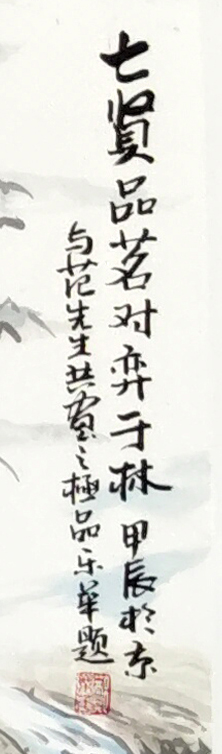 七贤品茗对弈于林 甲辰於京
与范先生共赏之極品 乐華题